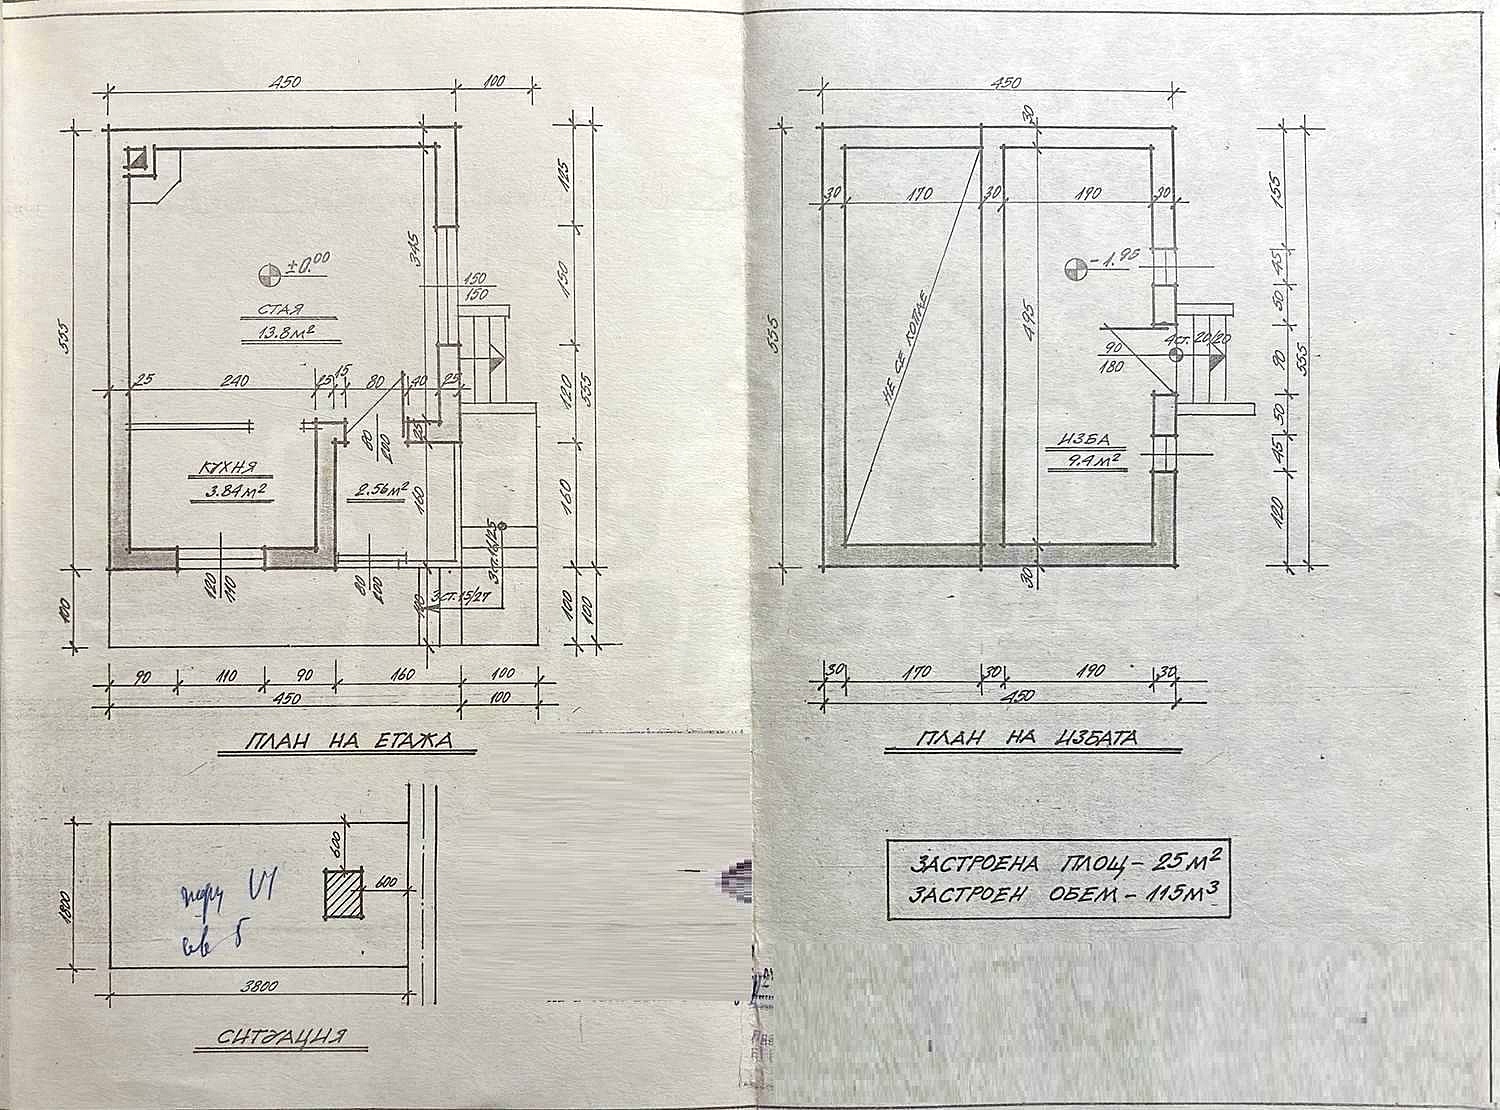 450
100
30
450
125
155
30
170
30
190
30
345
±0.00
-1.95
150
150
150
45
СТАЯ
13.8м²
50
555
555
НЕ СЕ КОПАЕ
495
4ст. 20/20
90
180
90
555
25
240
15
15
80
40
25
120
555
25
80
200
50
КУХНЯ
3.84м²
2.56м²
ИЗБА
9.4м²
45
160
160
120
3ст.16/25
120
110
80
200
3ст.15/27
30
100
100
100
90
110
90
160
100
450
100
30
170
30
190
30
450
ПЛАН НА ЕТАЖА
ПЛАН НА ИЗБАТА
600
600
1800
VI
3800
СИТУАЦИЯ
ЗАСТРОЕНА ПЛОЩ - 25м²
ЗАСТРОЕН ОБЕМ - 115м³